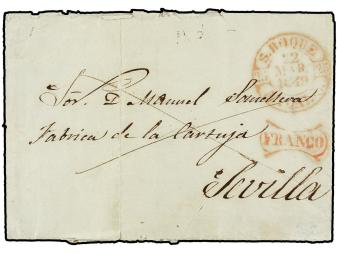 S. ROQUE
22
MAR
1849
Sor. D. Manuel
Fabrica de la Cartuja
FRANCO
Sevilla